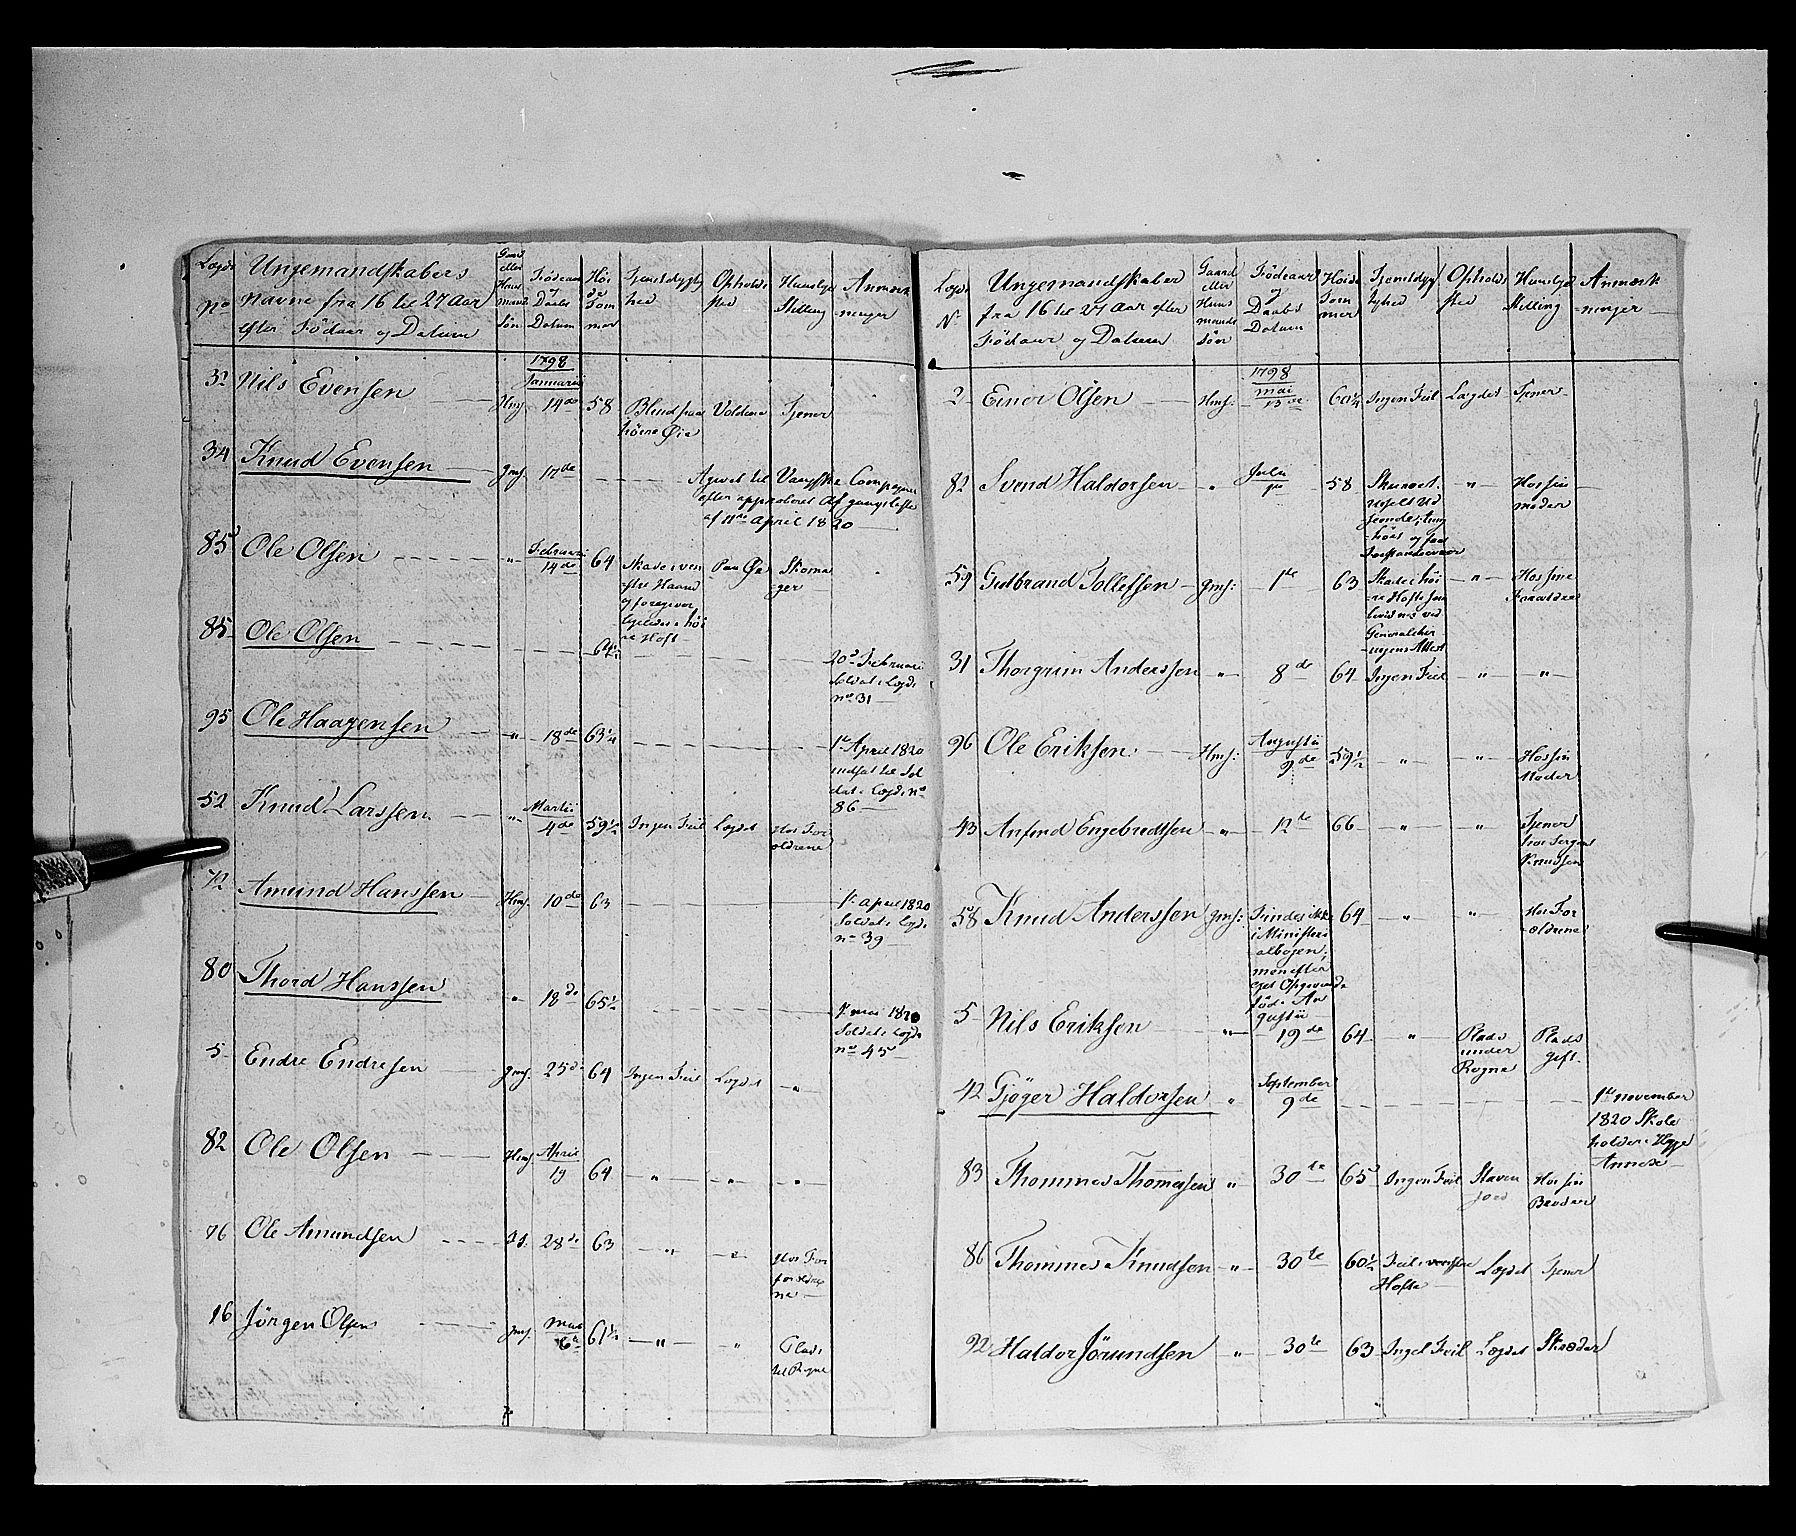 Lægds No
Ungemandskabers Navne fra 16 til 27 Aar efter Födaar og Datum
Gaard eller Huus mands Sön
Födeaar og Daabs Datum
Höi de Tom mer
Tjenstdygtig hed
Opholds sted
Huuslige Stilling
Anmærk ninger
1798
Januarii
32 Nils Evensen — Hms: 14de 58 Blind paa höire Øie Voldene Tjener
34 Knud Evensen — gms. 17de — Agivet til Vangske Compagnie
efter approberet Afgangsliste
af 11te April 1820 —
Februarii
85 Ole Olsen " 14de 64 Skade i ven
stre Haand
og foregiver
lyde i höi
re Hoft Paa Øe Skoma
ger
85 Ole Olsen — 64 — 20de Februarii
Soldat i Lægd
no 31 —
95 Ole Haagensen " 18de 63¼ — 1te April 1820
udsat til Sol
dat i Lægd no
86 —
Martii
52 Knud Larssen — " 4de 59½ Ingen Feil Lægdet Hos For
ældrene
72 Amund Hanssen — Hms. 10de 63 — 1te April 1820
Soldat i Lægd
no 39 —
80 Thord Hanssen " 18de 65½ — 1te mai 1820
Soldat i Lægd
no 45 —
5 Endre Endresen — gms. 25de 64 Ingen Feil Lægdet "
April
82 Ole Olsen — Hms. 19 64 " " "
76 Ole Amundsen 28de 63 " " Hos For
ældre
ne
Mai
16 Jörgen Olsen — gms. 6te 61½ " " Plads
til Rogne
Lægds No
Ungemandskaber fra 16 til 27 Aar efter Födaar og Datum
Gaard eller Huus mands Sön
Födeaar og Daabs Datum
Höide Tom mer
Tjenstdyg tighed
Opholds sted
Huuslige Stilling
Anmærk ninger —
1798
mai
2 Einer Olsen — Hms: 13de 60¼ Ingen Feil Lægdet Tjener
Julii
82 Svend Haldorsen — " 1te 58 " Hos sin
moder
59 Gulbrand Tollefsen — gms: 1te 63 Skade i höi
re Hofte som
bevidnes ved
Attest — " — Hos sine
Forældre
31 Thorgrim Anderssen " 8de 64 Ingen Feil " "
Augustii
96 Ole Eriksen — Hms: 9de 59½ " " Hos sin
Moder
43 Anfind Engebredtsen — " 12te 66 " " Tjener
hos Jörgen
Knudsen
58 Knud Anderssen gms: Findes ikke
i Ministeri
albogen,
men efter
eget Opgivende
föd i Au
gustii 64 " " Hos For
ældrene
5 Nils Eriksen " 19de 64 " Plads
under
Rogne Plads
gift.
September
42 Gjöger Haldorsen " 9de — 1te november
1820 Skole
holder i Hegge
Annex —
83 Thommes Thommesen " 30te 65 Ingen Feil Hos sin
Broder
86 Thommes Knudsen " 30te 60½ Feil i venstre
Hofte — Lægdet Tjener
92 Haldor Jörundsen " 30te 63 Ingel Feil Lægdet Skræder